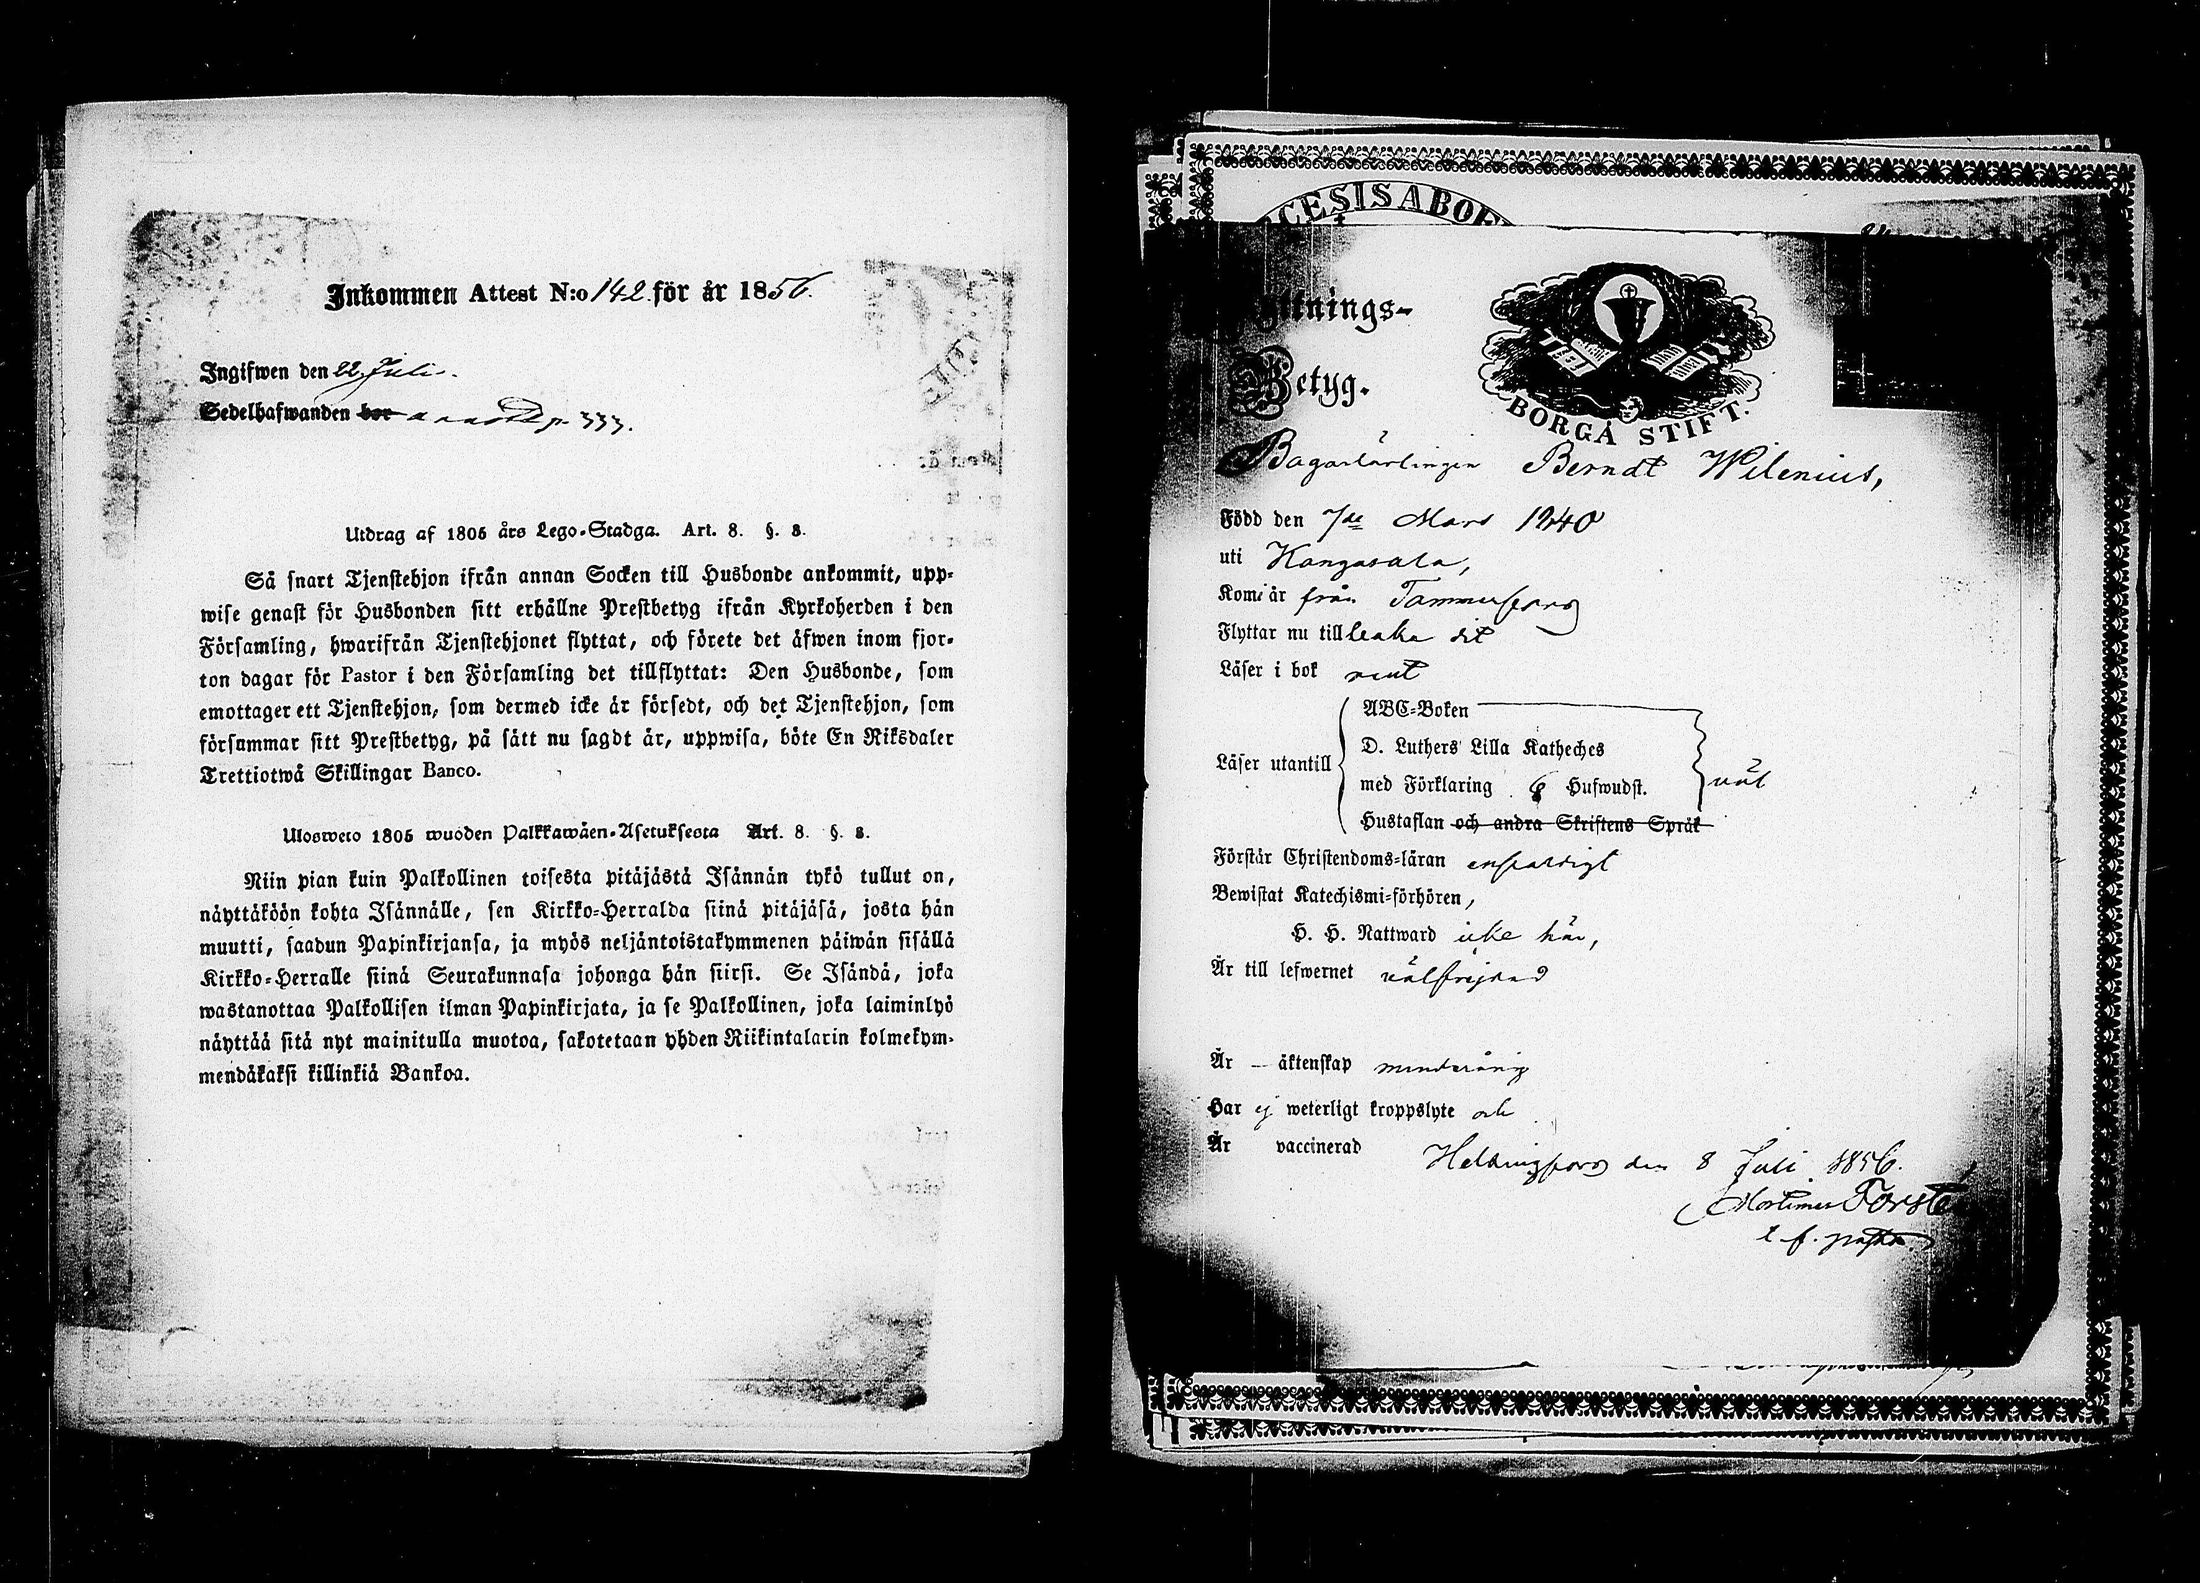 Inkommen Attest N:o 142 för år 1856.
Ingifwen den 22 Juli.
Sedelhafwanden bor p. 333.
Utdrag af 1805 års Lego-Stadga. Art. 8. §. 8.
Så snart Tjenstehjon ifrån annan Socken till Husbonde ankommit, upp-
wise genast för Husbonden sitt erhållne Prestbetyg ifrån Kyrkoherden i den
Församling, hwarifrån Tjenstehjonet flyttat, och förete det äfwen inom fjor-
ton dagar för Pastor i den Församling det tillflyttat: Den Husbonde, som
emottager ett Tjenstehjon, som dermed icke är försedt, och det Tjenstehjon, som
försummar sitt Prestbetyg, på sätt nu sagdt är, uppwisa, böte En Riksdaler
Trettiotwå Skillingar Banco.
Ulosweto 1805 wuoden Palkkawäen-Asetuksesta Art. 8. §. 8.
Niin pian kuin Palkollinen toisesta pitäjästä Isännän tykö tullut on,
näyttäköön kohta Isännälle, sen Kirkko-Herralda siinä pitäjäsä, josta hän
muutti, saadun Papinkirjansa, ja myös neljäntoistakymmenen päiwän sisällä
Kirkko-Herralle siinä Seurakunnasa johonga hän siirsi. Se Isändä, joka
wastanottaa Palkollisen ilman Papinkirjata, ja se Palkollinen, joka laiminlyö
näyttää sitä nyt mainitulla muotoa, sakotetaan yhden Riikintalarin kolmekym-
mendäkaksi killinkiä Bankoa.
CESIS ABOE
ttnings-
Betyg.
BORGÅ STIFT.
Bagarlärlingen Berndt Wilenius,
Född den 7de Mars 1840
uti Kangasala,
Kom i år från Tammerfors
Flyttar nu till baka dit
Läser i bok rent
ABC-Boken
D. Luthers Lilla Katheches
Läser utantill med Förklaring 6 Hufwudst. wäl
Hustaflan och andra Skriftens Språk
Förstår Christendoms-läran enfaldigt
Bewistat Katechismi-förhören,
H. H. Nattward icke här,
Är till lefwernet wälfrejdad
Är – äktenskap minderårig
Har ej weterligt kroppslyte och
Är vaccinerad
Helsingfors den 8 Juli 1856.
Mortimer
t. f. pastor